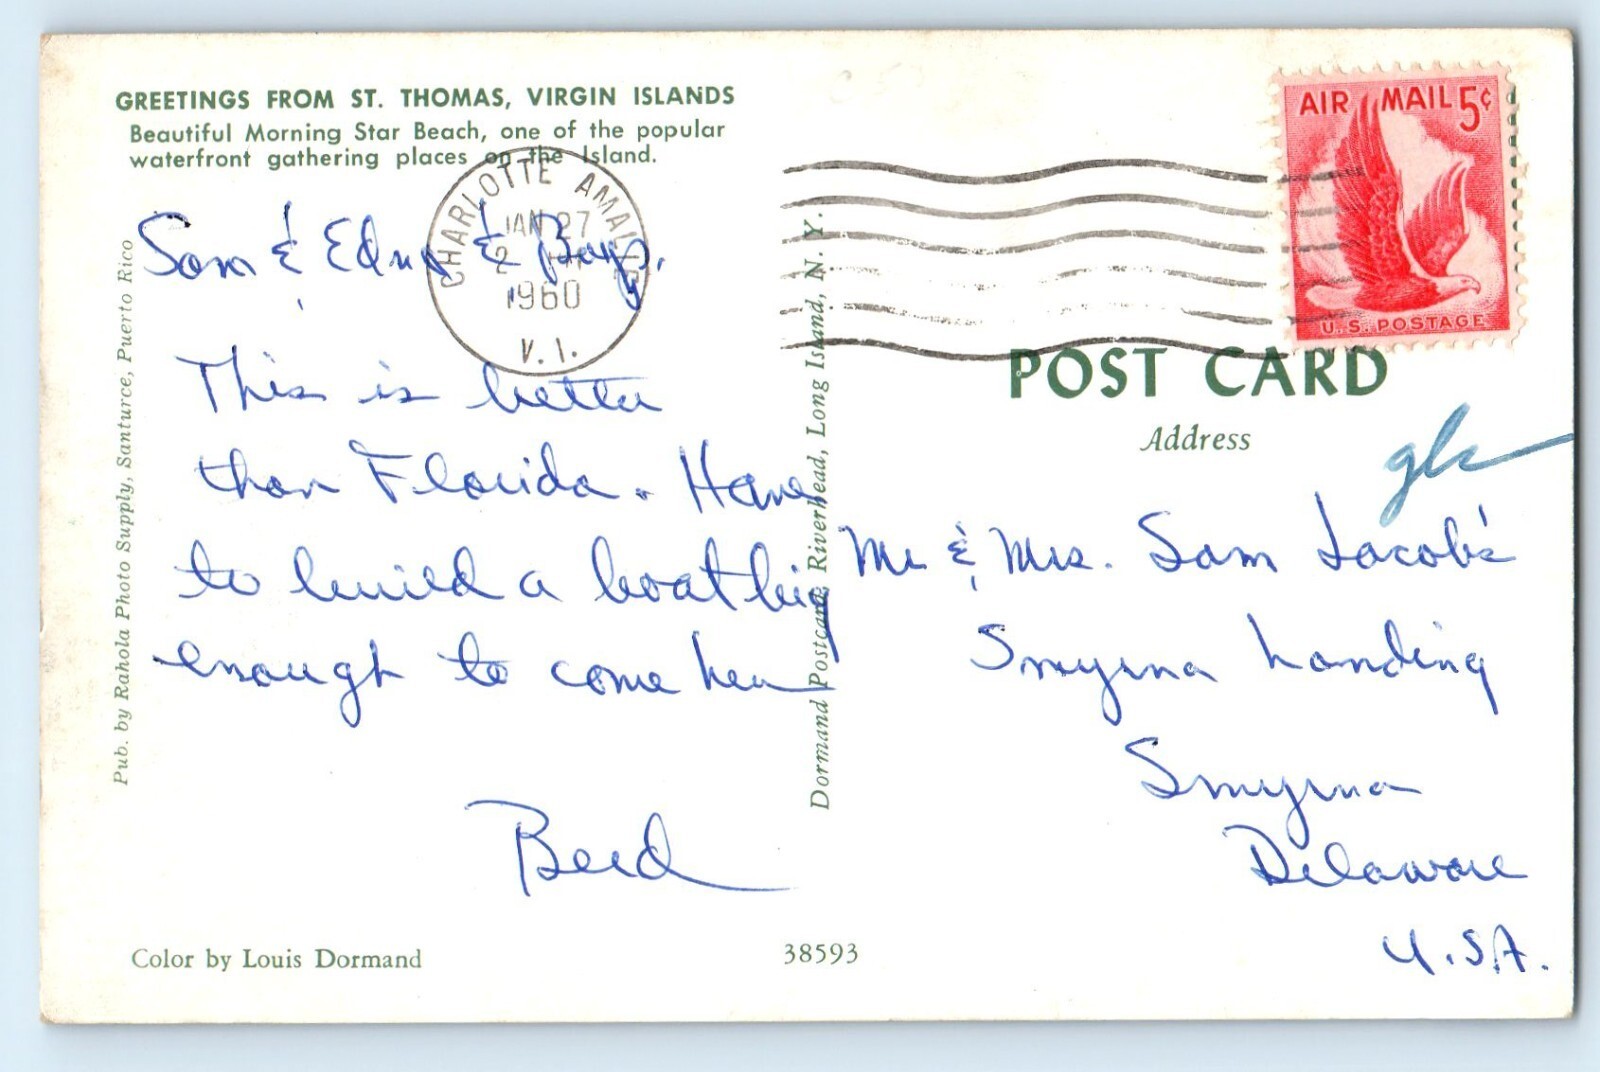 GREETINGS FROM ST. THOMAS, VIRGIN ISLANDS
Beautiful Morning Star Beach, one of the popular
waterfront gathering places on the Island.
CHARLOTTE AMALIE
JAN 27
2 PM
1960
V. I.
Sam & Edna & Boys,
This is better
than Florida. Have
to build a boat big
enough to come here
Color by Louis Dormand
Pub. by Rahola Photo Supply, Santurce, Puerto Rico
Dormand Postcards, Riverhead, Long Island, N. Y.
38593
AIR MAIL 5¢
U.S. POSTAGE
POST CARD
Address
Mr & Mrs. Sam Jacobs
Smyrna Landing
Smyrna
Delaware
U.S.A.